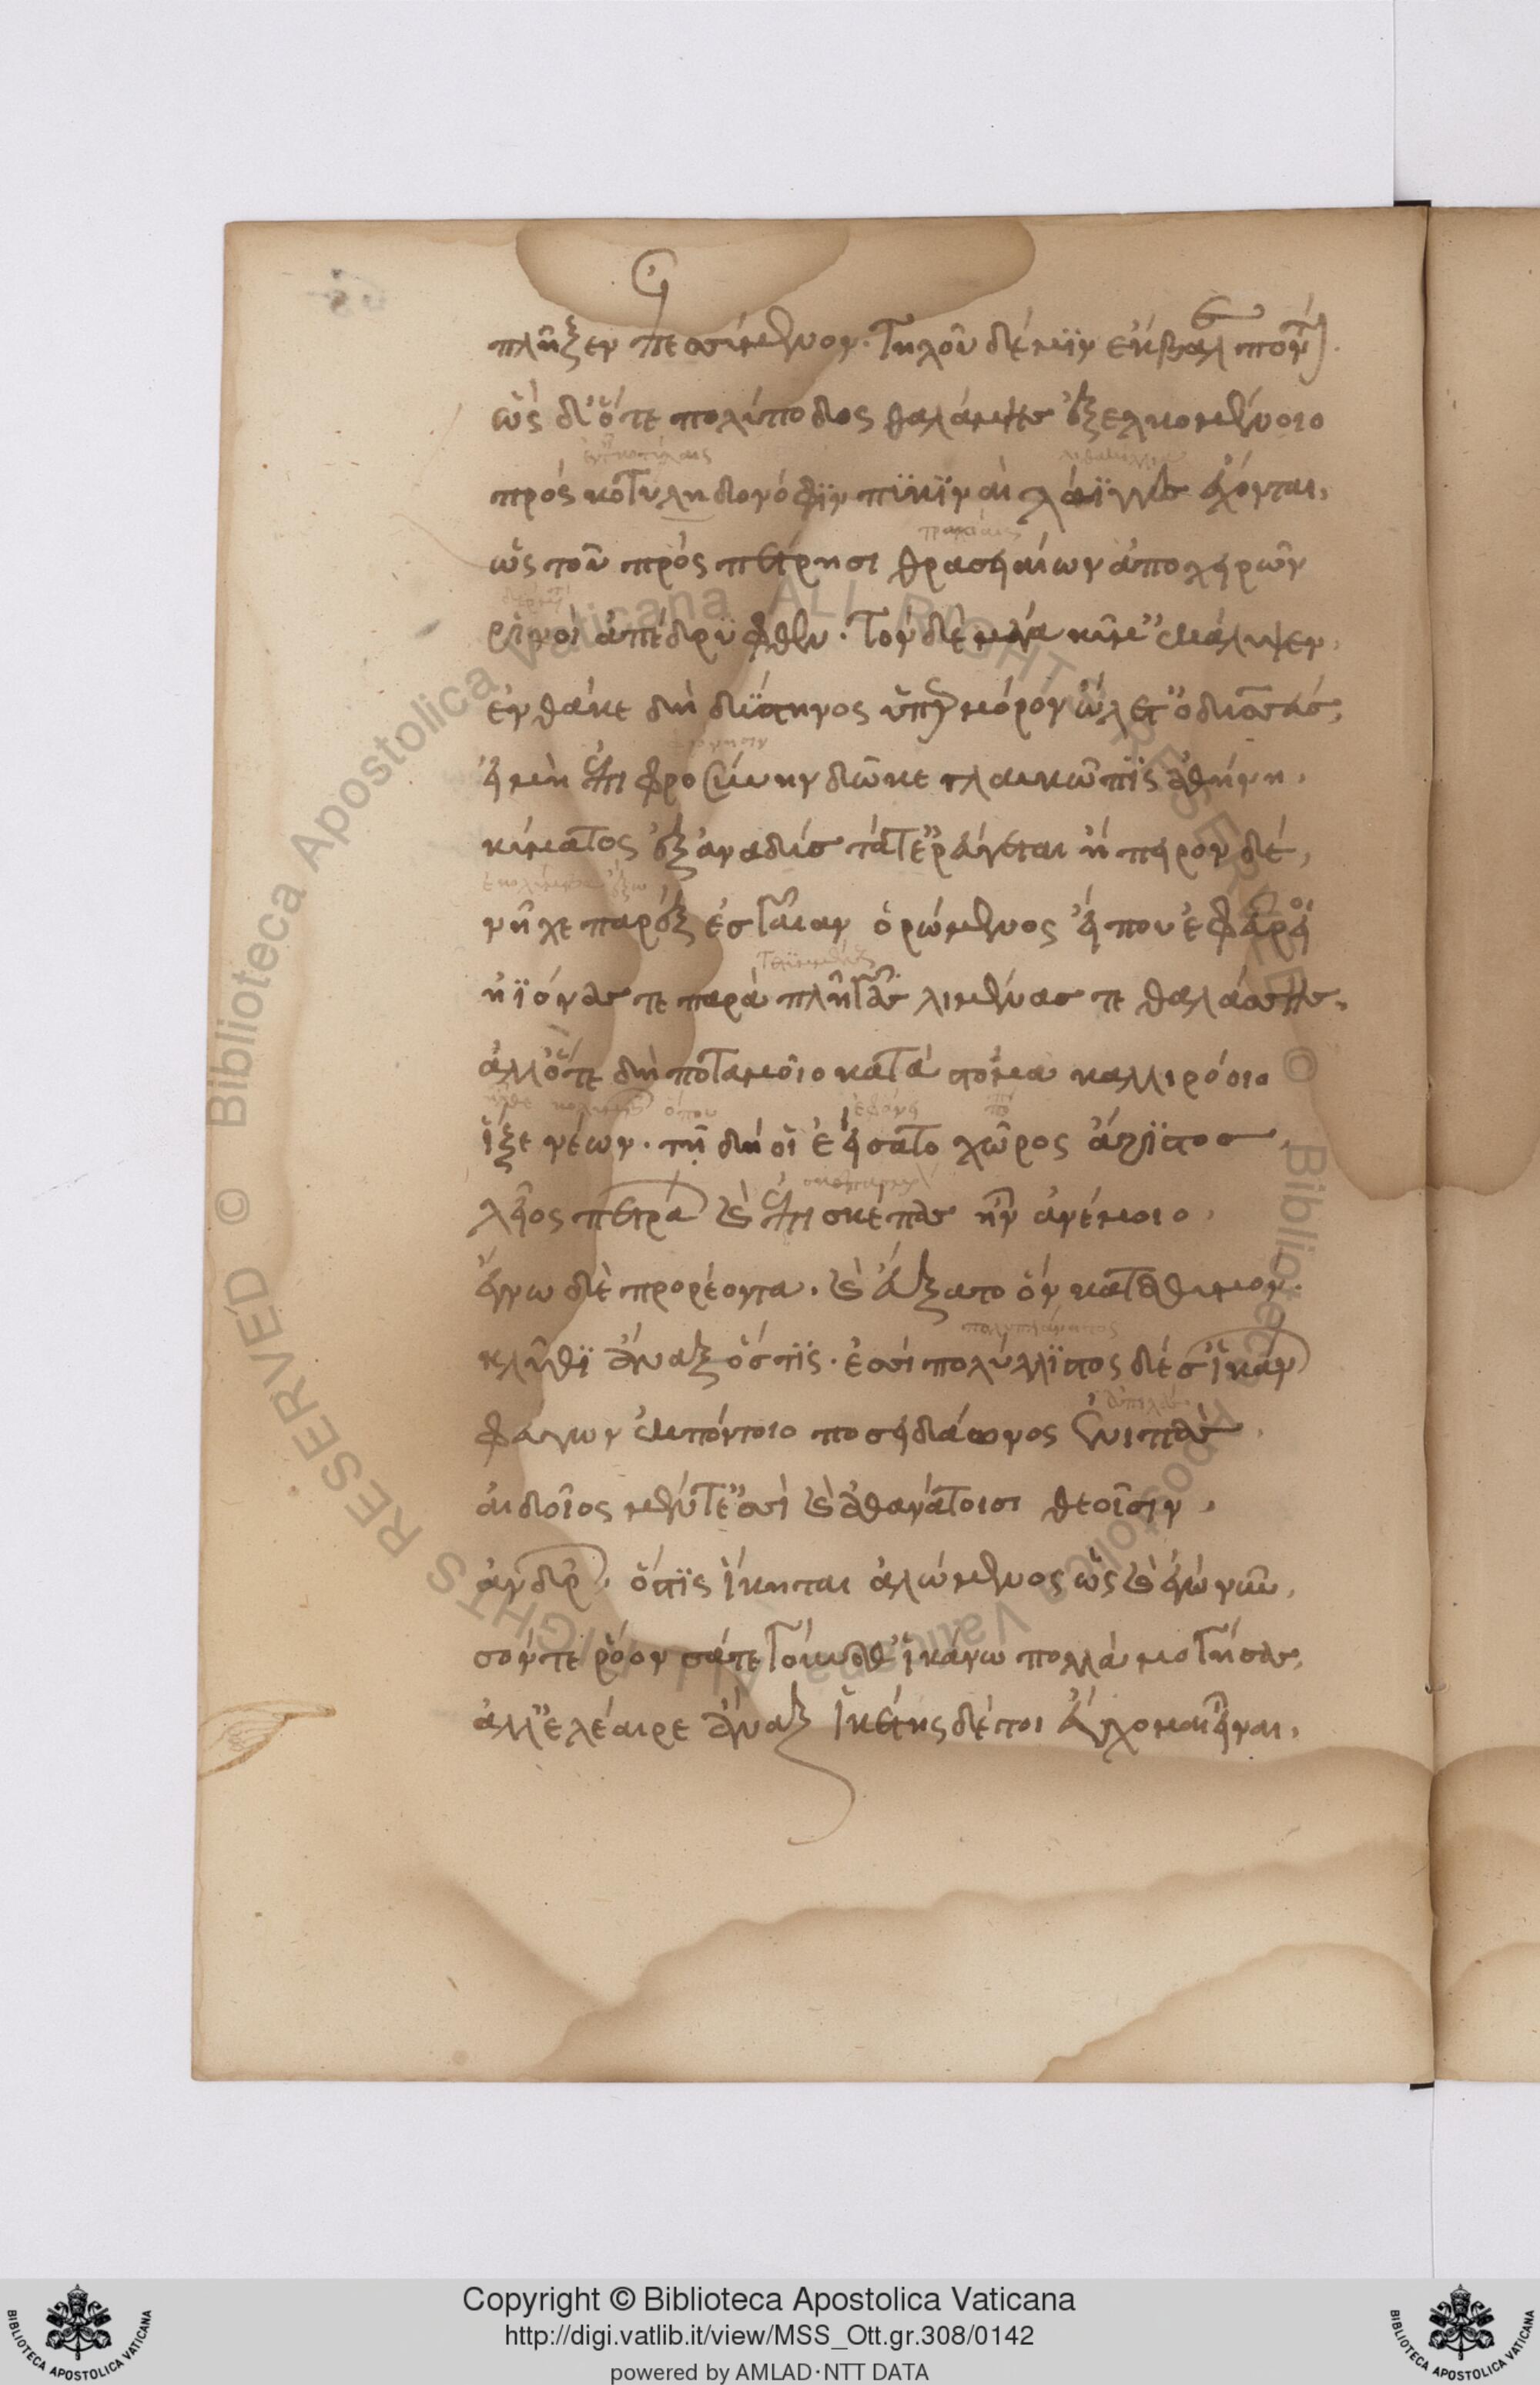 πλῆξεν ἐπεσσύμενον· τηλοῦ δέ μϊν ἔκβαλε πόντῳ.
ὡς δ' ὅτε πολύποδος θαλάμης ἐξελκομένοιο
πρὸς κοτυληδονόφϊν πϋκϊναὶ λάϊγγες ἔχονται,
ὣς τοῦ πρὸς πέτρησι θρασειάων ἀπὸ χειρῶν
ῥινοὶ ἀπέδρϋφθεν· τὸν δὲ μέγα κῦμ' ἐκάλυψεν,
ἔνθα κε δὴ δύστηνος ὑπὲρ μόρον ὤλετ' ὀδυσσεύς,
εἰ μὴ ἐπιφροσύνην δῶκε γλαυκῶπϊς ἀθήνη,
κύματος ἐξαναδὺς τά τ' ἐρεύγεται ἤπειρον δέ,
νῆχε παρὲξ ἐς γαῖαν ὁρώμενος εἴ που ἐφεύροι
ἠϊόνας τε παραπλῆγας λιμένας τε θαλάσσης,
ἀλλ' ὅτε δὴ ποταμοῖο κατὰ στόμα καλλιρόοιο
ἷξε νέων· τῇ δή οἱ ἐείσατο χῶρος ἄριϊστος
λεῖος πετράων καὶ ἐπὶ σκέπας ἦν ἀνέμοιο,
ἔγνω δὲ προρέοντα· καὶ εὔξατο ὃν κατὰ θυμόν.
πολυπλάνητος
κλῦθϊ ἄναξ ὅστϊς· ἐσσὶ πολύλλϊστος δέ σ' ἱκάνω
φεύγων ἐκ πόντοιο ποσειδάωνος ἐνιπὰς,
αἰδοῖος μέν τ' ἐστὶ καὶ ἀθανάτοισι θεοῖσιν,
ἀνδρῶν, ὅστϊς ἵκηται ἀλώμενος ὡς καὶ ἐγὼ νῦν,
σόν τε ῥόον σά τε γούναθ' ἱκάνω πολλὰ μογήσας,
ἀλλ' ἐλέαιρε ἄναξ ἱκέτης δέ τοι εὔχομαι εἶναι,
Copyright © Biblioteca Apostolica Vaticana
http://digi.vatlib.it/view/MSS_Ott.gr.308/0142
powered by AMLAD·NTT DATA